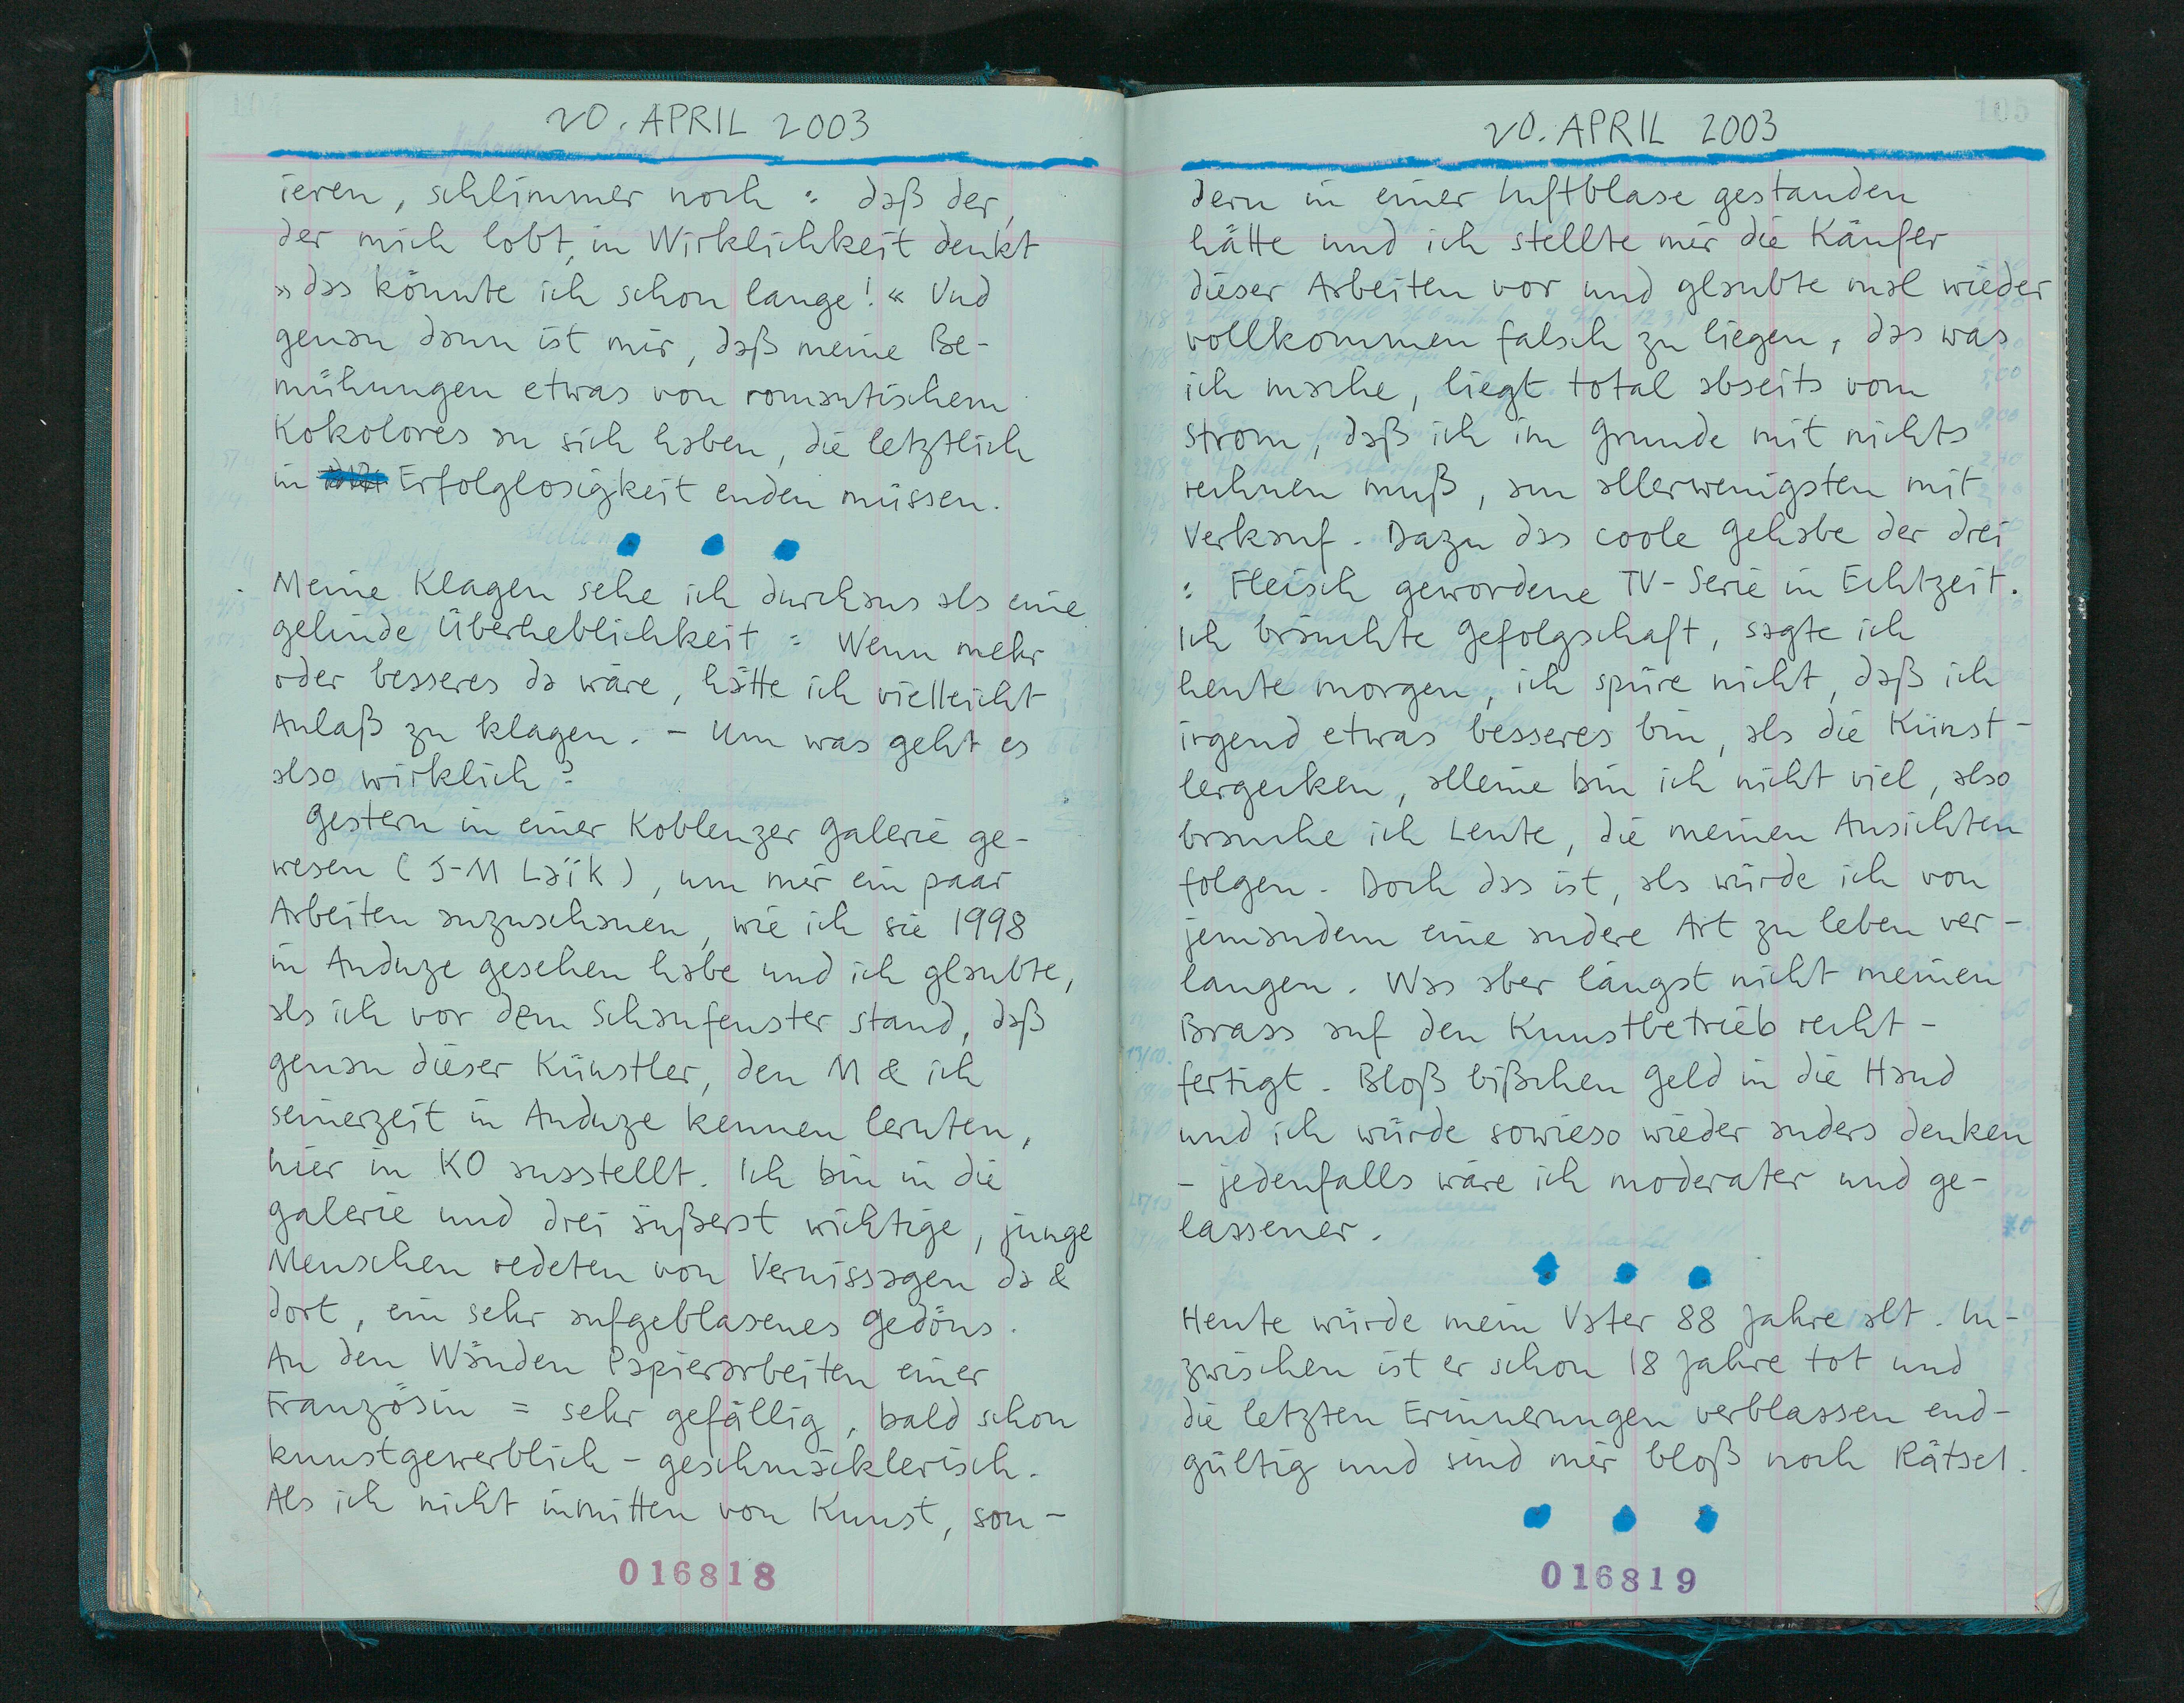 20. APRIL 2003
ieren, schlimmer noch : daß der,
der mich lobt, in Wirklichkeit denkt
»das könnte ich schon lange!« Und
genau dann ist mir, daß meine Be-
mühungen etwas von romantischem
Kokolores an sich haben, die letztlich
in Erfolglosigkeit enden müssen.
Meine Klagen sehe ich durchaus als eine
gelinde Überheblichkeit : Wenn mehr
oder besseres da wäre, hätte ich vielleicht
Anlaß zu klagen. - Um was geht es
also wirklich?
Gestern in einer Koblenzer Galerie ge-
wesen (J-M Laik), um mir ein paar
Arbeiten anzuschauen, wie ich sie 1998
in Anduze gesehen habe und ich glaubte,
als ich vor dem Schaufenster stand, daß
genau dieser Künstler, den M & ich
seinerzeit in Anduze kennen lernten,
hier in KO ausstellt. Ich bin in die
Galerie und drei äußerst wichtige, junge
Menschen redeten von Vernissagen da &
dort, ein sehr aufgeblasenes Gedöns.
An den Wänden Papierarbeiten einer
Französin = sehr gefällig, bald schon
kunstgewerblich - geschmäcklerisch.
Als ich nicht inmitten von Kunst, son-
016818
20. APRIL 2003
dern in einer Luftblase gestanden
hätte und ich stellte mir die Käufer
dieser Arbeiten vor und glaubte mal wieder
vollkommen falsch zu liegen, das was
ich mache, liegt total abseits vom
Strom, daß ich im Grunde mit nichts
rechnen muß, am allerwenigsten mit
Verkauf. Dazu das coole Gehabe der drei
: Fleisch gewordene TV-Serie in Echtzeit.
Ich bräuchte Gefolgschaft, sagte ich
heute morgen, ich spüre nicht, daß ich
irgend etwas besseres bin, als die Künst-
lergecken, alleine bin ich nicht viel, also
brauche ich Leute, die meinen Ansichten
folgen. Doch das ist, als würde ich von
jemandem eine andere Art zu leben ver-
langen. Was aber längst nicht meinen
Brass auf den Kunstbetrieb recht-
fertigt. Bloß bißchen Geld in die Hand
und ich würde sowieso wieder anders denken
- jedenfalls wäre ich moderater und ge-
lassener.
Heute würde mein Vater 88 Jahre alt. In-
zwischen ist er schon 18 Jahre tot und
die letzten Erinnerungen verblassen end-
gültig und sind mir bloß noch Rätsel.
016819